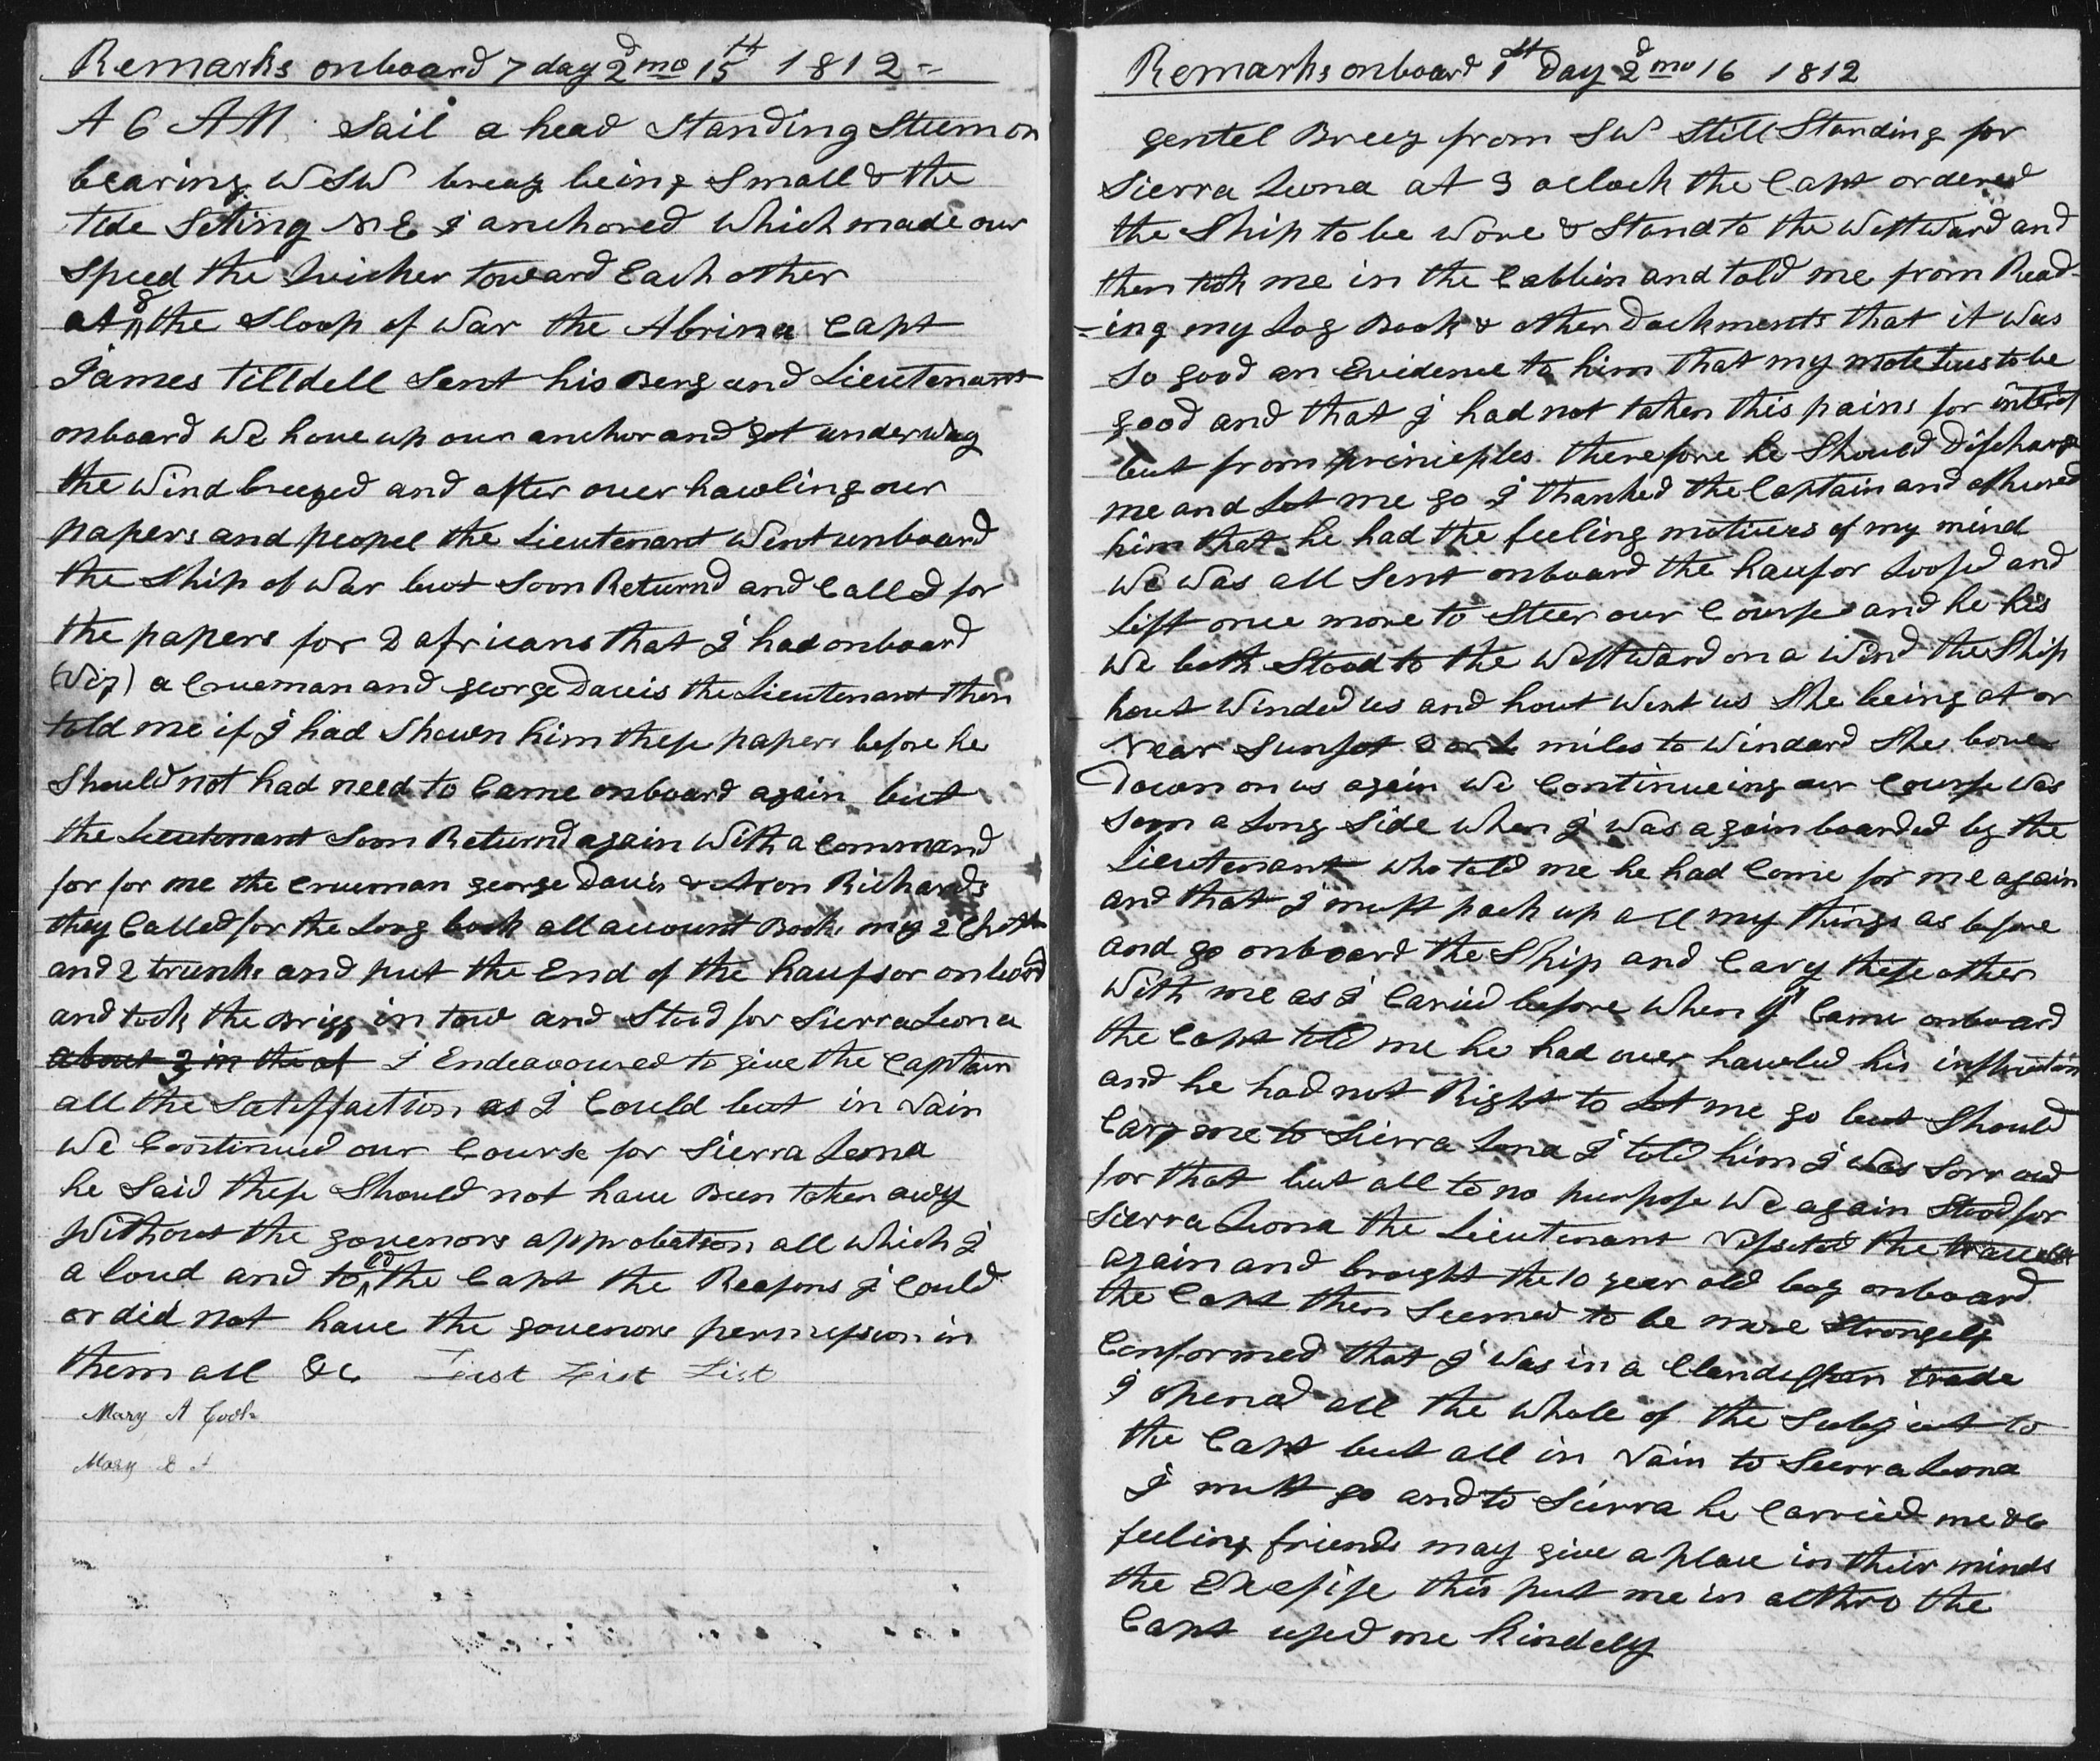 Remarks onboard 7 day 2d mo 15th 1812 =
A 6 AM Sail a head Standing Steem on
bearing WSW breaz being Small & the
tide Seting N E I anchored which made our
Speed the Quicker toward Each other
at 8 the Sloop of war the Abrina Capt
James Tilldell Sent his Berg and Lieutenant
onboard we hove up our anchor and got underway
the Wind breezed and after over hawling our
papers and peopel the Lieutenant Went onboard
the Ship of war but Soon Returnd and Calld for
the papers for 2 africans that I had onboard
(Viz) a Crueman and george Davis the Lieutenant then
told me if I had Shown him these papers before he
Should not had need to Came onboard again but
the Lieutenant Soon Returnd again With a Command
for for me the Crueman george Davis & Aron Richards
they Called for the Log book all account Books my 2 Chests
and 2 trunks and put the End of the haupsor onbord
and took the Brigg in tow and Stood for Sierra Leona
about 3 in the af I Endeavoured to give the Captain
all the Satisfaction as I Could but in Vain
We Continued our Course for Sierra Leona
he Said these Should not have Been taken away
Without the govenors approbation all which I
a loud and told the Capt the Reasons I Could
or did not have the govenors permission in
them all &c List List List
Mary A Cook
Mary
Remarks onboard 1st Day 2d mo 16 1812
gentel Breez from SW Still Standing for
Sierra Leona at 3 oclock the Capt ordered
the Ship to be Wore & Stand to the Westward and
then took me in the Cabbin and told me from Read-
-ing my Log Book & other Dockments that it was
So good an Evidence to him that my motetives to be
good and that I had not taken this pains for interest
but from prinicples therefore he Should Discharge
me and Let me go I thanked the Captain and ashured
him that he had the feeling motivees of my mind
We Was all Sent onboard the hausor Loosed and
Left once more to Steer our Course and he his
We both Stood to the Westward on a Wind the Ship
hout Winded us and hout Went us She being at or
near Sunset 3 or 4 miles to Windard She bore
Down on us again We Continueing our Course Was
Soon a Long Side when I was again boarded by the
Lieutenant who told me he had Come for me again
and that I must pack up all my things as before
and go onboard the Ship and Cary these other
With me as I Caried before When I Came onboard
the Capt told me he had over hawled his instruction
and he had not Right to Let me go but Should
Cary me to Sierra Lona I told him I Was Sorr
for that but all to no purpose We again Stood for
Sierra Leona the Lieutenant Visseted the
again and brought the 10 year old boy onboard
the Capt then Seemed to be more Strongely
Conformed that I Was in a Clandestan trade
I opened all the Whole of the Subject to
the Capt but all in Vain to Sierra Leona
I must go and to Sierra he Carried me &c
feeling friends may give a place in their minds
the Exesise this put me in altho the
Capt used me Kindely